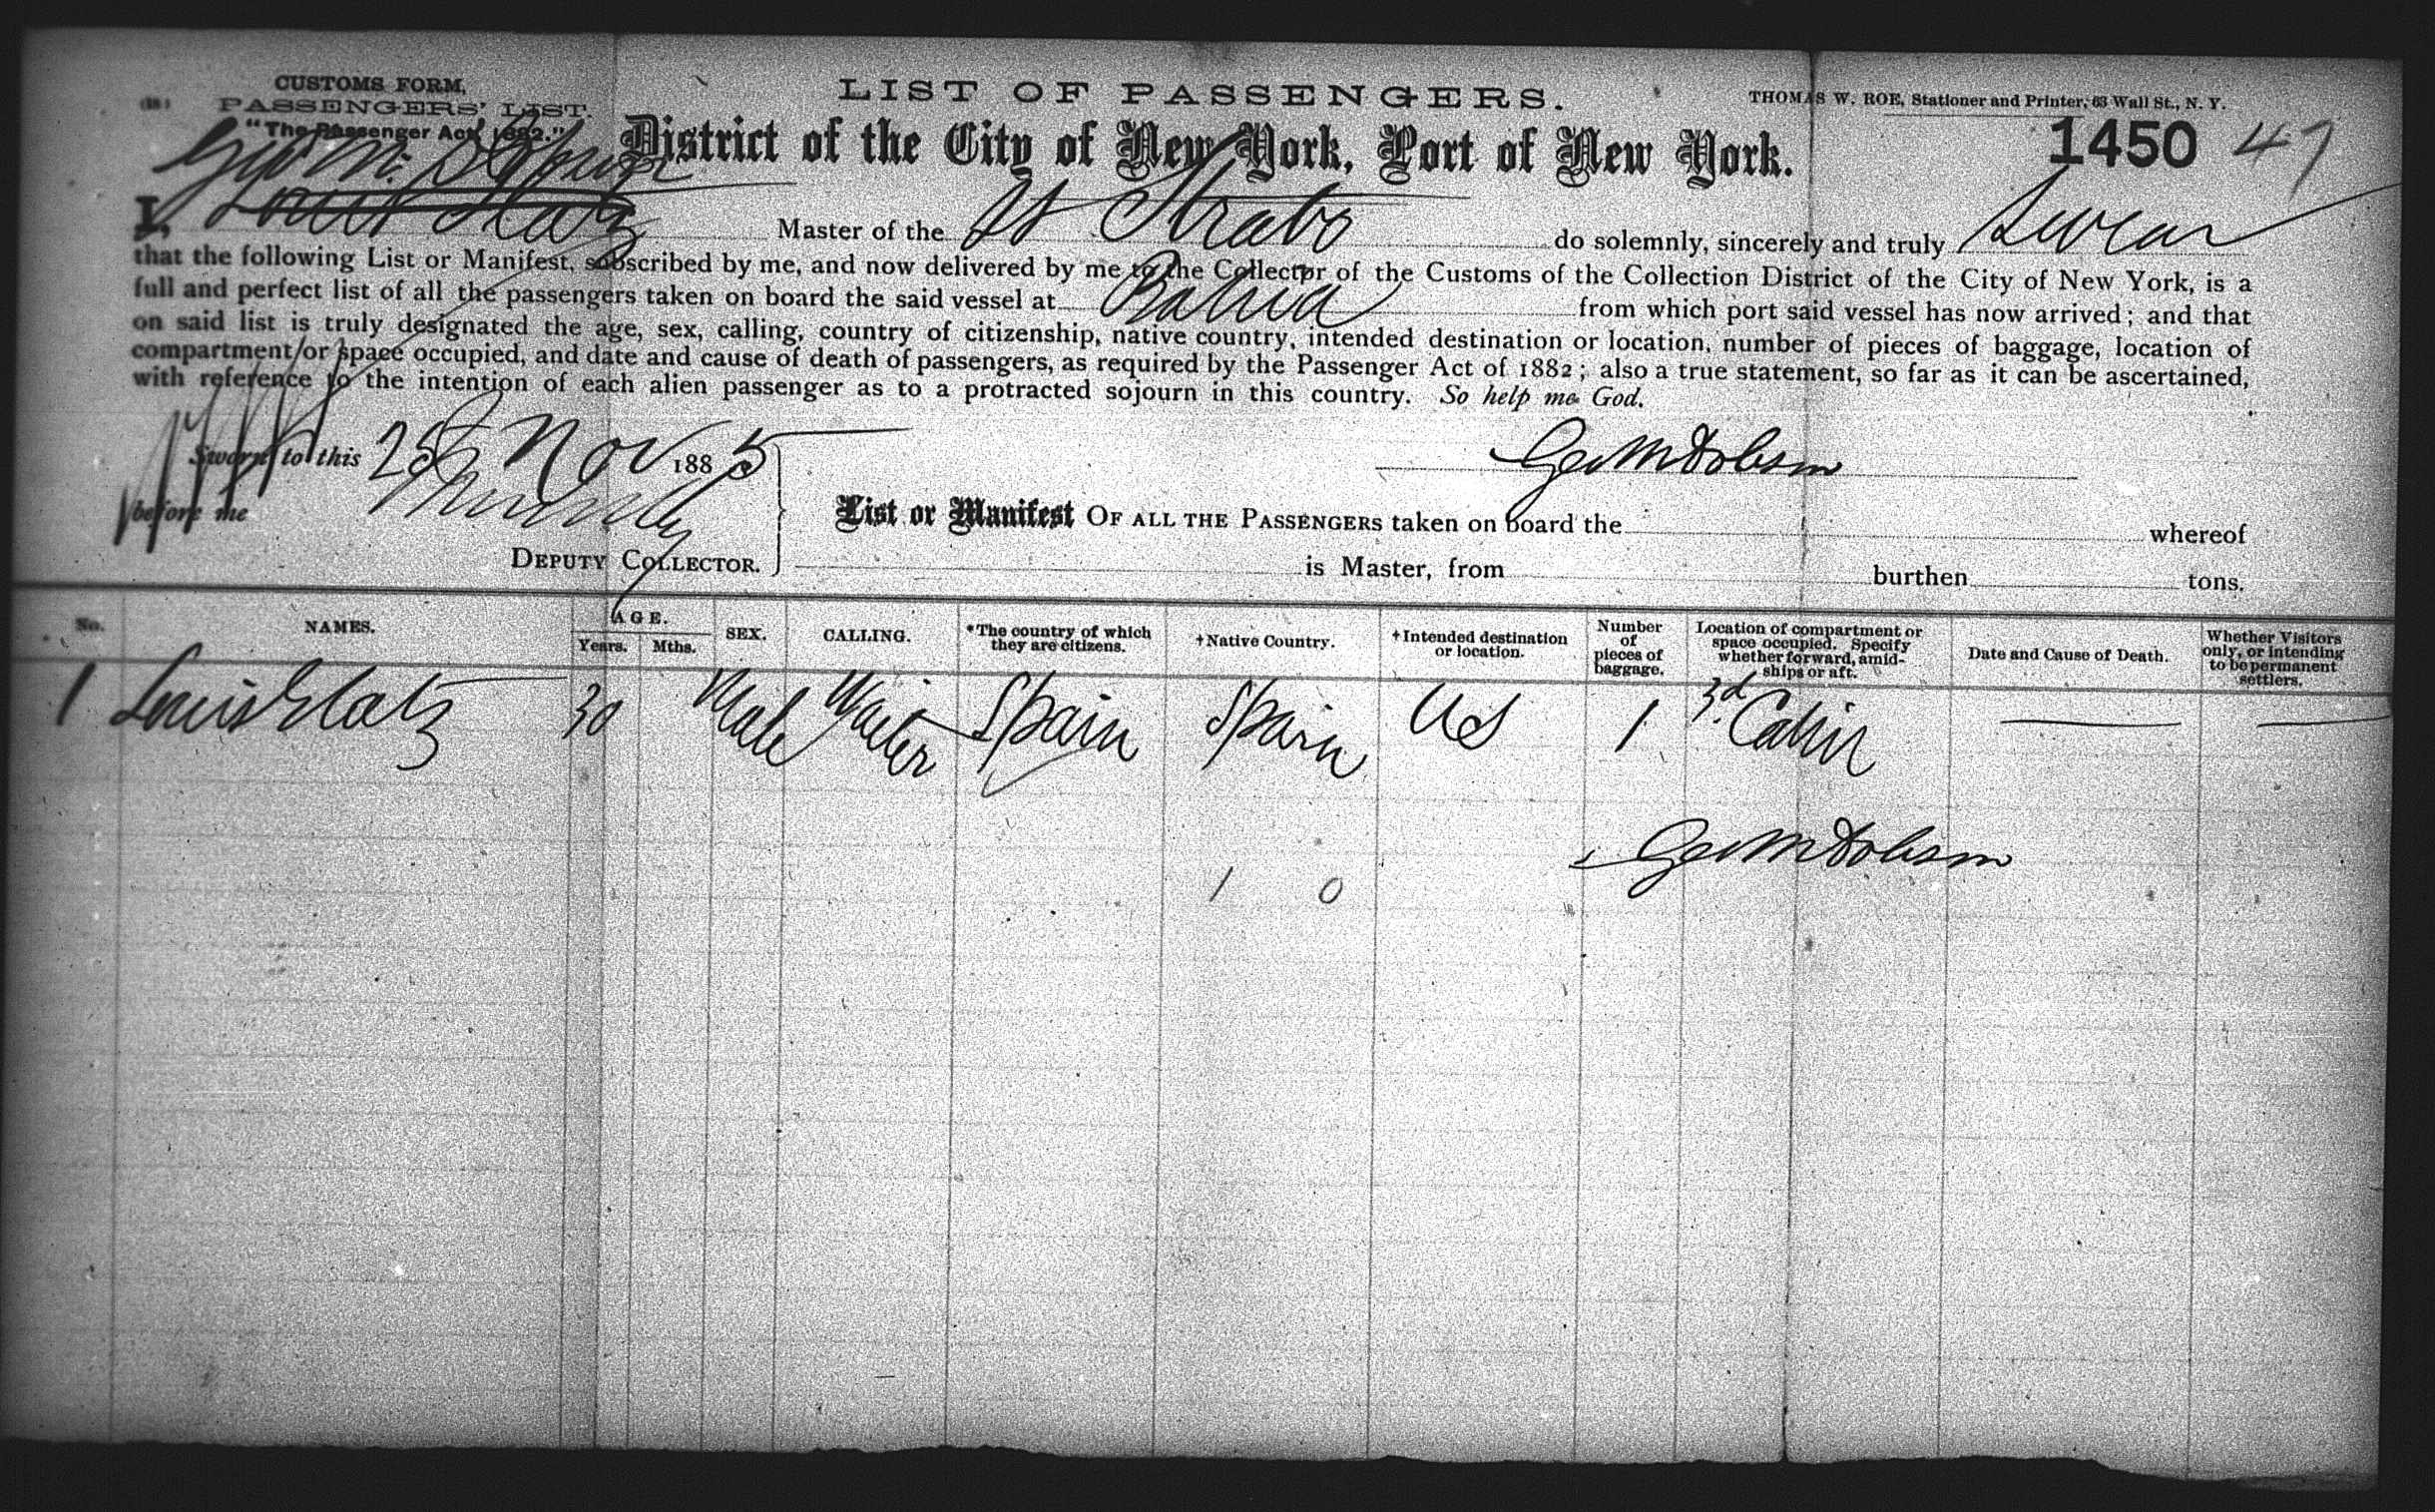 CUSTOMS FORM,
PASSENGERS' LIST.
"The Passenger Act, 1882."
LIST OF PASSENGERS.
THOMAS W. ROE, Stationer and Printer, 63 Wall St., N. Y.
District of the City of New York, Port of New York.
1450 47
Geo M. Dobson
I, Louis Slatz Master of the SS Strabo do solemnly, sincerely and truly Swear
that the following List or Manifest, subscribed by me, and now delivered by me to the Collector of the Customs of the Collection District of the City of New York, is a
full and perfect list of all the passengers taken on board the said vessel at Bahia from which port said vessel has now arrived; and that
on said list is truly designated the age, sex, calling, country of citizenship, native country, intended destination or location, number of pieces of baggage, location of
compartment or space occupied, and date and cause of death of passengers, as required by the Passenger Act of 1882; also a true statement, so far as it can be ascertained,
with reference to the intention of each alien passenger as to a protracted sojourn in this country. So help me God.
Sworn to this 25 Nov 1885
Geo M Dobson
before me
DEPUTY COLLECTOR.
List or Manifest OF ALL THE PASSENGERS taken on board the whereof
is Master, from burthen tons.
No. NAMES. AGE. Years. Mths. SEX. CALLING. *The country of which they are citizens. †Native Country. †Intended destination or location. Number of pieces of baggage. Location of compartment or space occupied. Specify whether forward, amidships or aft. Date and Cause of Death. Whether Visitors only, or intending to be permanent settlers.
1 Louis Slatz 30 Male Waiter Spain Spain US 1 3d Cabin
Geo M Dobson
1 0